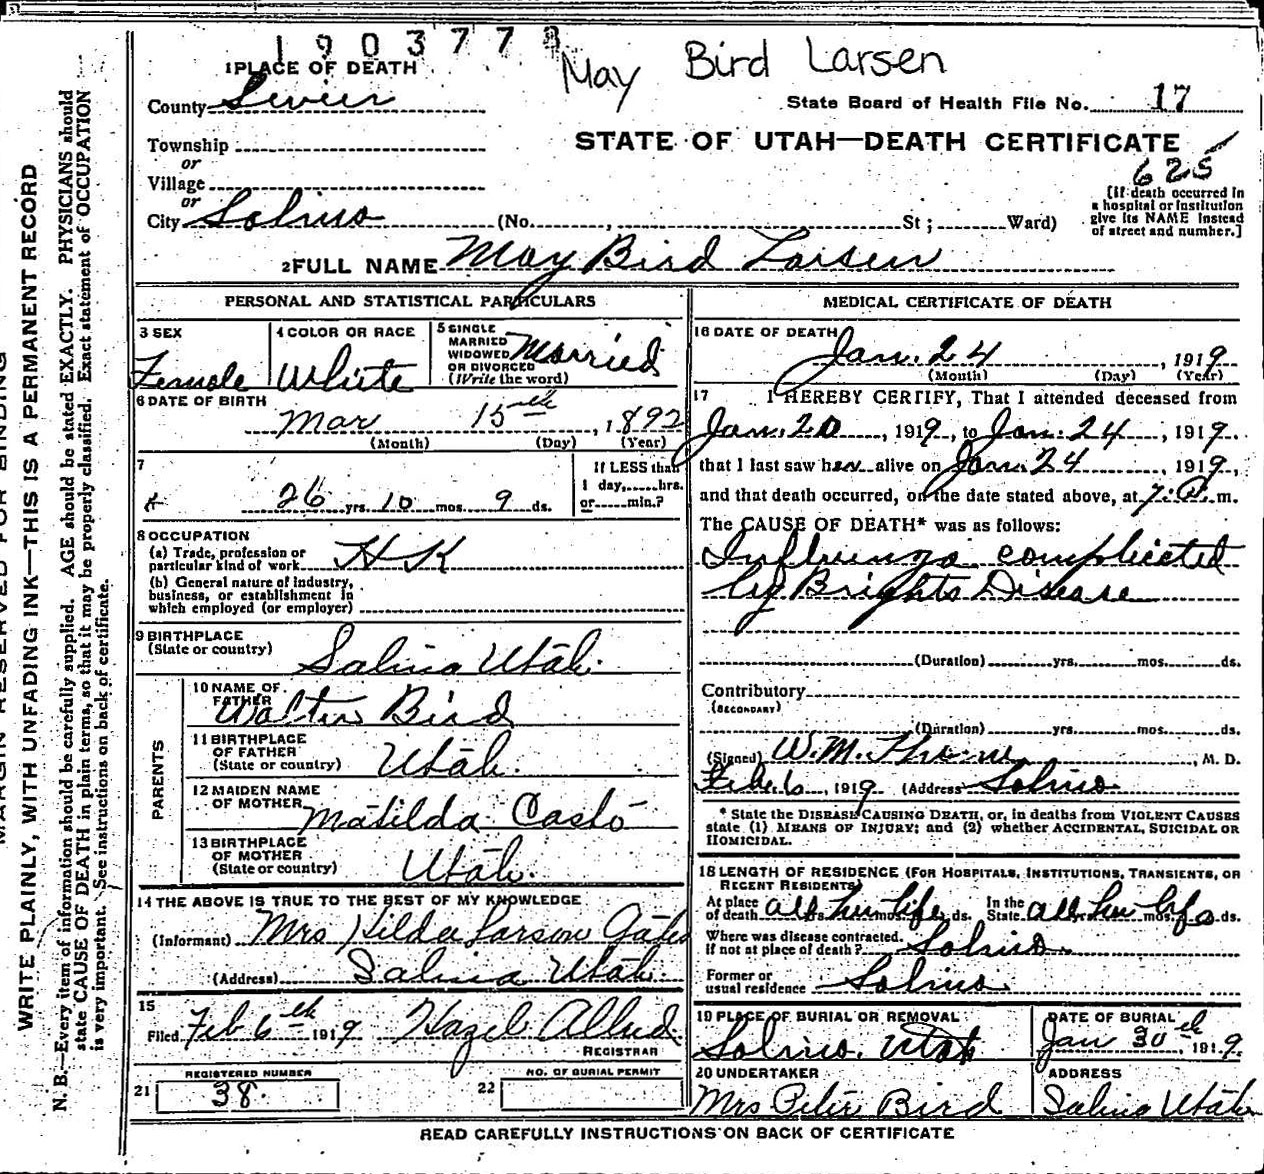 1903773
May Bird Larsen
1 PLACE OF DEATH
County Sevier
State Board of Health File No. 17
Township
STATE OF UTAH—DEATH CERTIFICATE
or
625
Village
or
City Salina (No. , St ; Ward)
[If death occurred in
a hospital or institution
give its NAME instead
of street and number.]
2 FULL NAME May Bird Larsen
PERSONAL AND STATISTICAL PARTICULARS
3 SEX
Female
4 COLOR OR RACE
White
5 SINGLE
MARRIED
WIDOWED
OR DIVORCED
(Write the word)
Married
6 DATE OF BIRTH
Mar 15th, 1892
(Month) (Day) (Year)
7
26 yrs. 10 mos. 9 ds.
If LESS than
1 day,......hrs.
or......min.?
8 OCCUPATION
(a) Trade, profession or
particular kind of work H K
(b) General nature of industry,
business, or establishment in
which employed (or employer)
9 BIRTHPLACE
(State or country)
Salina Utah.
PARENTS
10 NAME OF
FATHER
Walter Bird
11 BIRTHPLACE
OF FATHER
(State or country)
Utah.
12 MAIDEN NAME
OF MOTHER
Matilda Casto
13 BIRTHPLACE
OF MOTHER
(State or country)
Utah.
14 THE ABOVE IS TRUE TO THE BEST OF MY KNOWLEDGE
(Informant) Mrs Hilda Larson Gates
(Address) Salina Utah.
15
Filed Feb 6th 1919 Hazel Allred
REGISTRAR
21 REGISTERED NUMBER
38.
22 NO. OF BURIAL PERMIT
MEDICAL CERTIFICATE OF DEATH
16 DATE OF DEATH
Jan. 24, 1919
(Month) (Day) (Year)
17 I HEREBY CERTIFY, That I attended deceased from
Jan. 20, 1919, to Jan. 24, 1919.
that I last saw her alive on Jan. 24, 1919,
and that death occurred, on the date stated above, at 7. a. m.
The CAUSE OF DEATH* was as follows:
Influenza complicated
by Brights Disease
(Duration) yrs. mos. ds.
Contributory
(SECONDARY)
(Duration) yrs. mos. ds.
(Signed) W. M. , M. D.
Feb. 6, 1919 (Address Salina
* State the DISEASE CAUSING DEATH, or, in deaths from VIOLENT CAUSES
state (1) MEANS OF INJURY; and (2) whether ACCIDENTAL, SUICIDAL OR
HOMICIDAL.
18 LENGTH OF RESIDENCE (FOR HOSPITALS, INSTITUTIONS, TRANSIENTS, OR
RECENT RESIDENTS)
At place
of death all her life yrs. mos. ds. In the
State all her life yrs. mos. ds.
Where was disease contracted.
if not at place of death? Salina
Former or
usual residence Salina
19 PLACE OF BURIAL OR REMOVAL
Salina. Utah
DATE OF BURIAL
Jan 30th, 1919.
20 UNDERTAKER
Mrs Peter Bird
ADDRESS
Salina Utah
READ CAREFULLY INSTRUCTIONS ON BACK OF CERTIFICATE
MARGIN RESERVED FOR BINDING
WRITE PLAINLY, WITH UNFADING INK—THIS IS A PERMANENT RECORD
N. B.—Every item of information should be carefully supplied. AGE should be stated EXACTLY. PHYSICIANS should
state CAUSE OF DEATH in plain terms, so that it may be properly classified. Exact statement of OCCUPATION
is very important. See instructions on back of certificate.